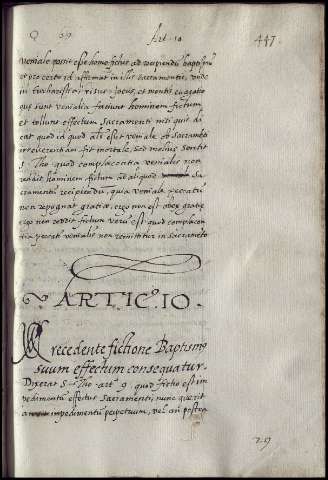 Q 69 Art. 10 447.
veniale possit esse homo fictus ad recipiendū baptismū
et pro certo id affirmat in illis sacramentis, unde
in Eucharistia risus, iocus, et mentis evagatio
quę sunt venialia faciunt hominem fictum,
et tollunt effectum sacramenti nisi quis di
cat quod id quod alias est veniale
S. Tho. quod complacentia venialis non
reddit hominem fictum ad aliquod sa
cramentū recipiendū, quia veniale peccatū
non repugnat gratiæ, ergo non est obex gratiæ
ergo non reddit fictum verū est quod complacen
tia peccati venialis non remittitur in sacramēto
ARTIC. 10.
recedente fictione Baptismo
suum effectum consequatur.
Dixerat S. Tho. art. 9. quod fictio est im
pedimentū effectus sacramenti, nunc quęrit
an impedimentū perpetuum, vel an postea